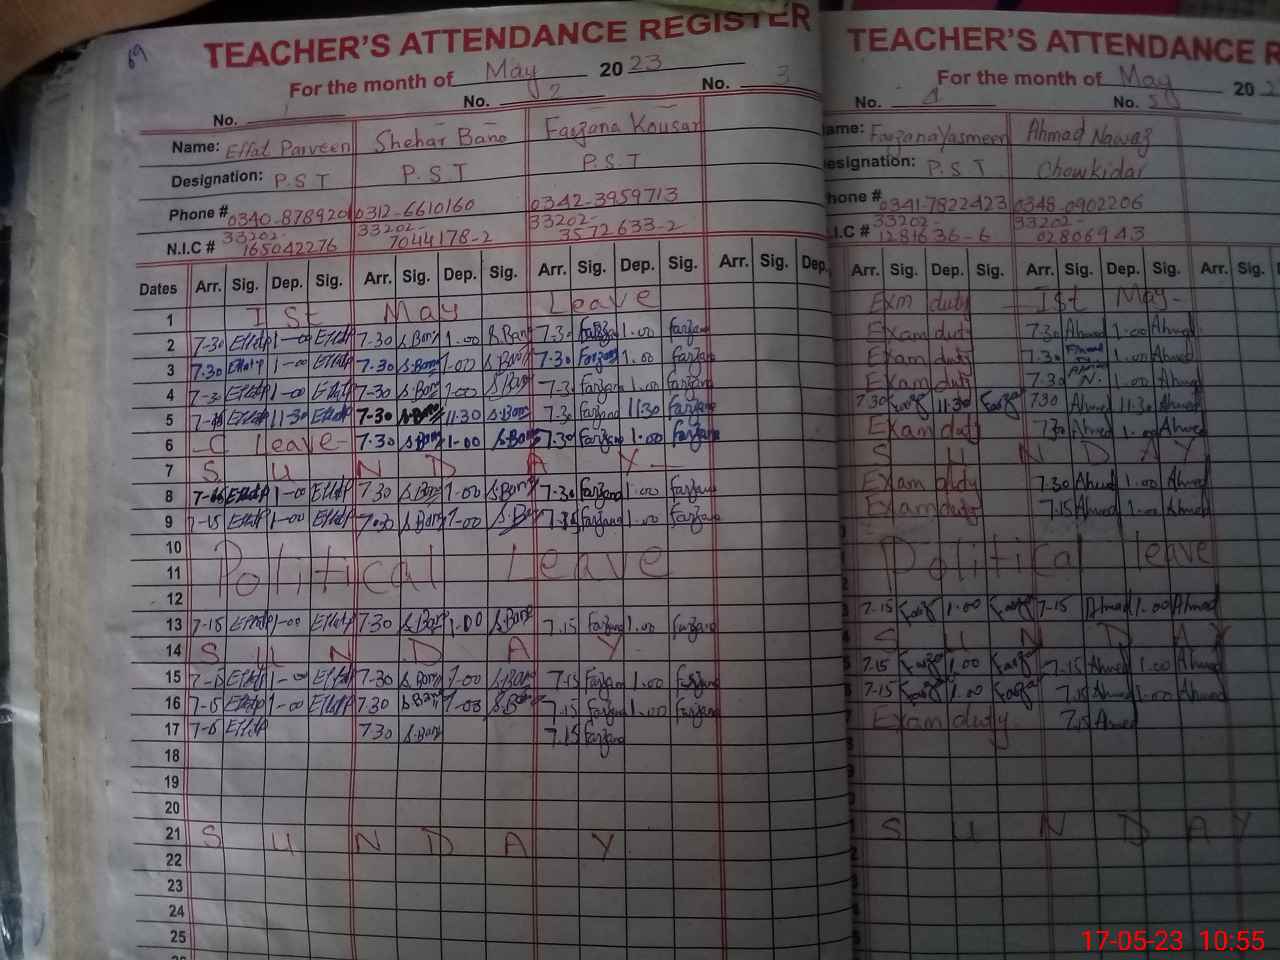 69
TEACHER'S ATTENDANCE REGISTER
For the month of May 2023
No. 1 No. 2 No. 3
Name: Effat Parveen Shehar Bano Farzana Kousar
Designation: P.S.T P.S.T P.S.T
Phone # 0340-878920 0312-6610160 0342-3959713
N.I.C # 33202-165042276 33202-7044178-2 33202-3572633-2
Dates Arr. Sig. Dep. Sig. Arr. Sig. Dep. Sig. Arr. Sig. Dep. Sig. Arr. Sig. Dep.
1 Ist May Leave
2 7-30 Effatp 1-00 Effatp 7.30 S.Bano 1.00 S.Bano 7.30 Farzana 1.00 Farzana
3 7.30 Effatp 1-00 Effatp 7.30 S.Bano 1.00 S.Bano 7.30 Farzana 1.00 Farzana
4 7-30 Effatp 1-00 Effatp 7-30 S.Bano 1.00 S.Bano 7.30 Farzana 1.00 Farzana
5 Effatp 11-30 Effatp 7-30 S.Bano 11.30 S.Bano 7.30 Farzana 11.30 Farzana
6 C Leave- 7.30 S.Bano 1-00 S.Bano 7.30 Farzana 1.00 Farzana
7 S U N D A Y
8 Effatp 1-00 Effatp 7.30 S.Bano 1.00 S.Bano 7.30 Farzana 1.00 Farzana
9 7-15 Effatp 1-00 Effatp 7.30 S.Bano 1-00 S.Bano 7.15 Farzana 1.00 Farzana
10
11 Political Leave
12
13 7-15 Effatp 1-00 Effatp 7.30 S.Bano 1.00 S.Bano 7.15 Farzana 1.00 Farzana
14 S U N D A Y
15 7-15 Effatp 1-00 Effatp 7-30 S.Bano 1-00 S.Bano 7.15 Farzana 1.00 Farzana
16 7-15 Effatp 1-00 Effatp 7.30 S.Bano 1-00 S.Bano 7.15 Farzana 1.00 Farzana
17 7-15 Effatp 7.30 S.Bano 7.15 Farzana
18
19
20
21 S U N D A Y
22
23
24
25
TEACHER'S ATTENDANCE R
For the month of May 202
No. 4 No. 5
ame: Farzana Yasmeen Ahmad Nawaz
esignation: P.S.T Chowkidar
hone # 0341-7822423 0348-0902206
I.C # 33202-1281636-6 33202-02806943
Arr. Sig. Dep. Sig. Arr. Sig. Dep. Sig. Arr. Sig.
Exm duty Ist May-
Exam duty 7.30 Ahmad 1.00 Ahmad
Exam duty 7.30 1.00 Ahmad
Exam duty 7.30 1.00 Ahmad
7.30 Farza 11.30 Farza 7.30 Ahmad 11.30 Ahmad
Exam duty 7.30 Ahmad 1.00 Ahmad
S U N D A Y
Exam duty 7.30 Ahmad 1.00 Ahmad
Exam duty 7.15 Ahmad 1.00 Ahmad
Political leave
7.15 Farza 1.00 Farza 7-15 Ahmad 1.00 Ahmad
S U N D A Y
7.15 Farza 1.00 Farza 7.15 Ahmad 1.00 Ahmad
7.15 Farza 1.00 Farza 7.15 Ahmad 1.00 Ahmad
Exam duty 7.15 Ahmad
S U N D A Y
17-05-23 10:55